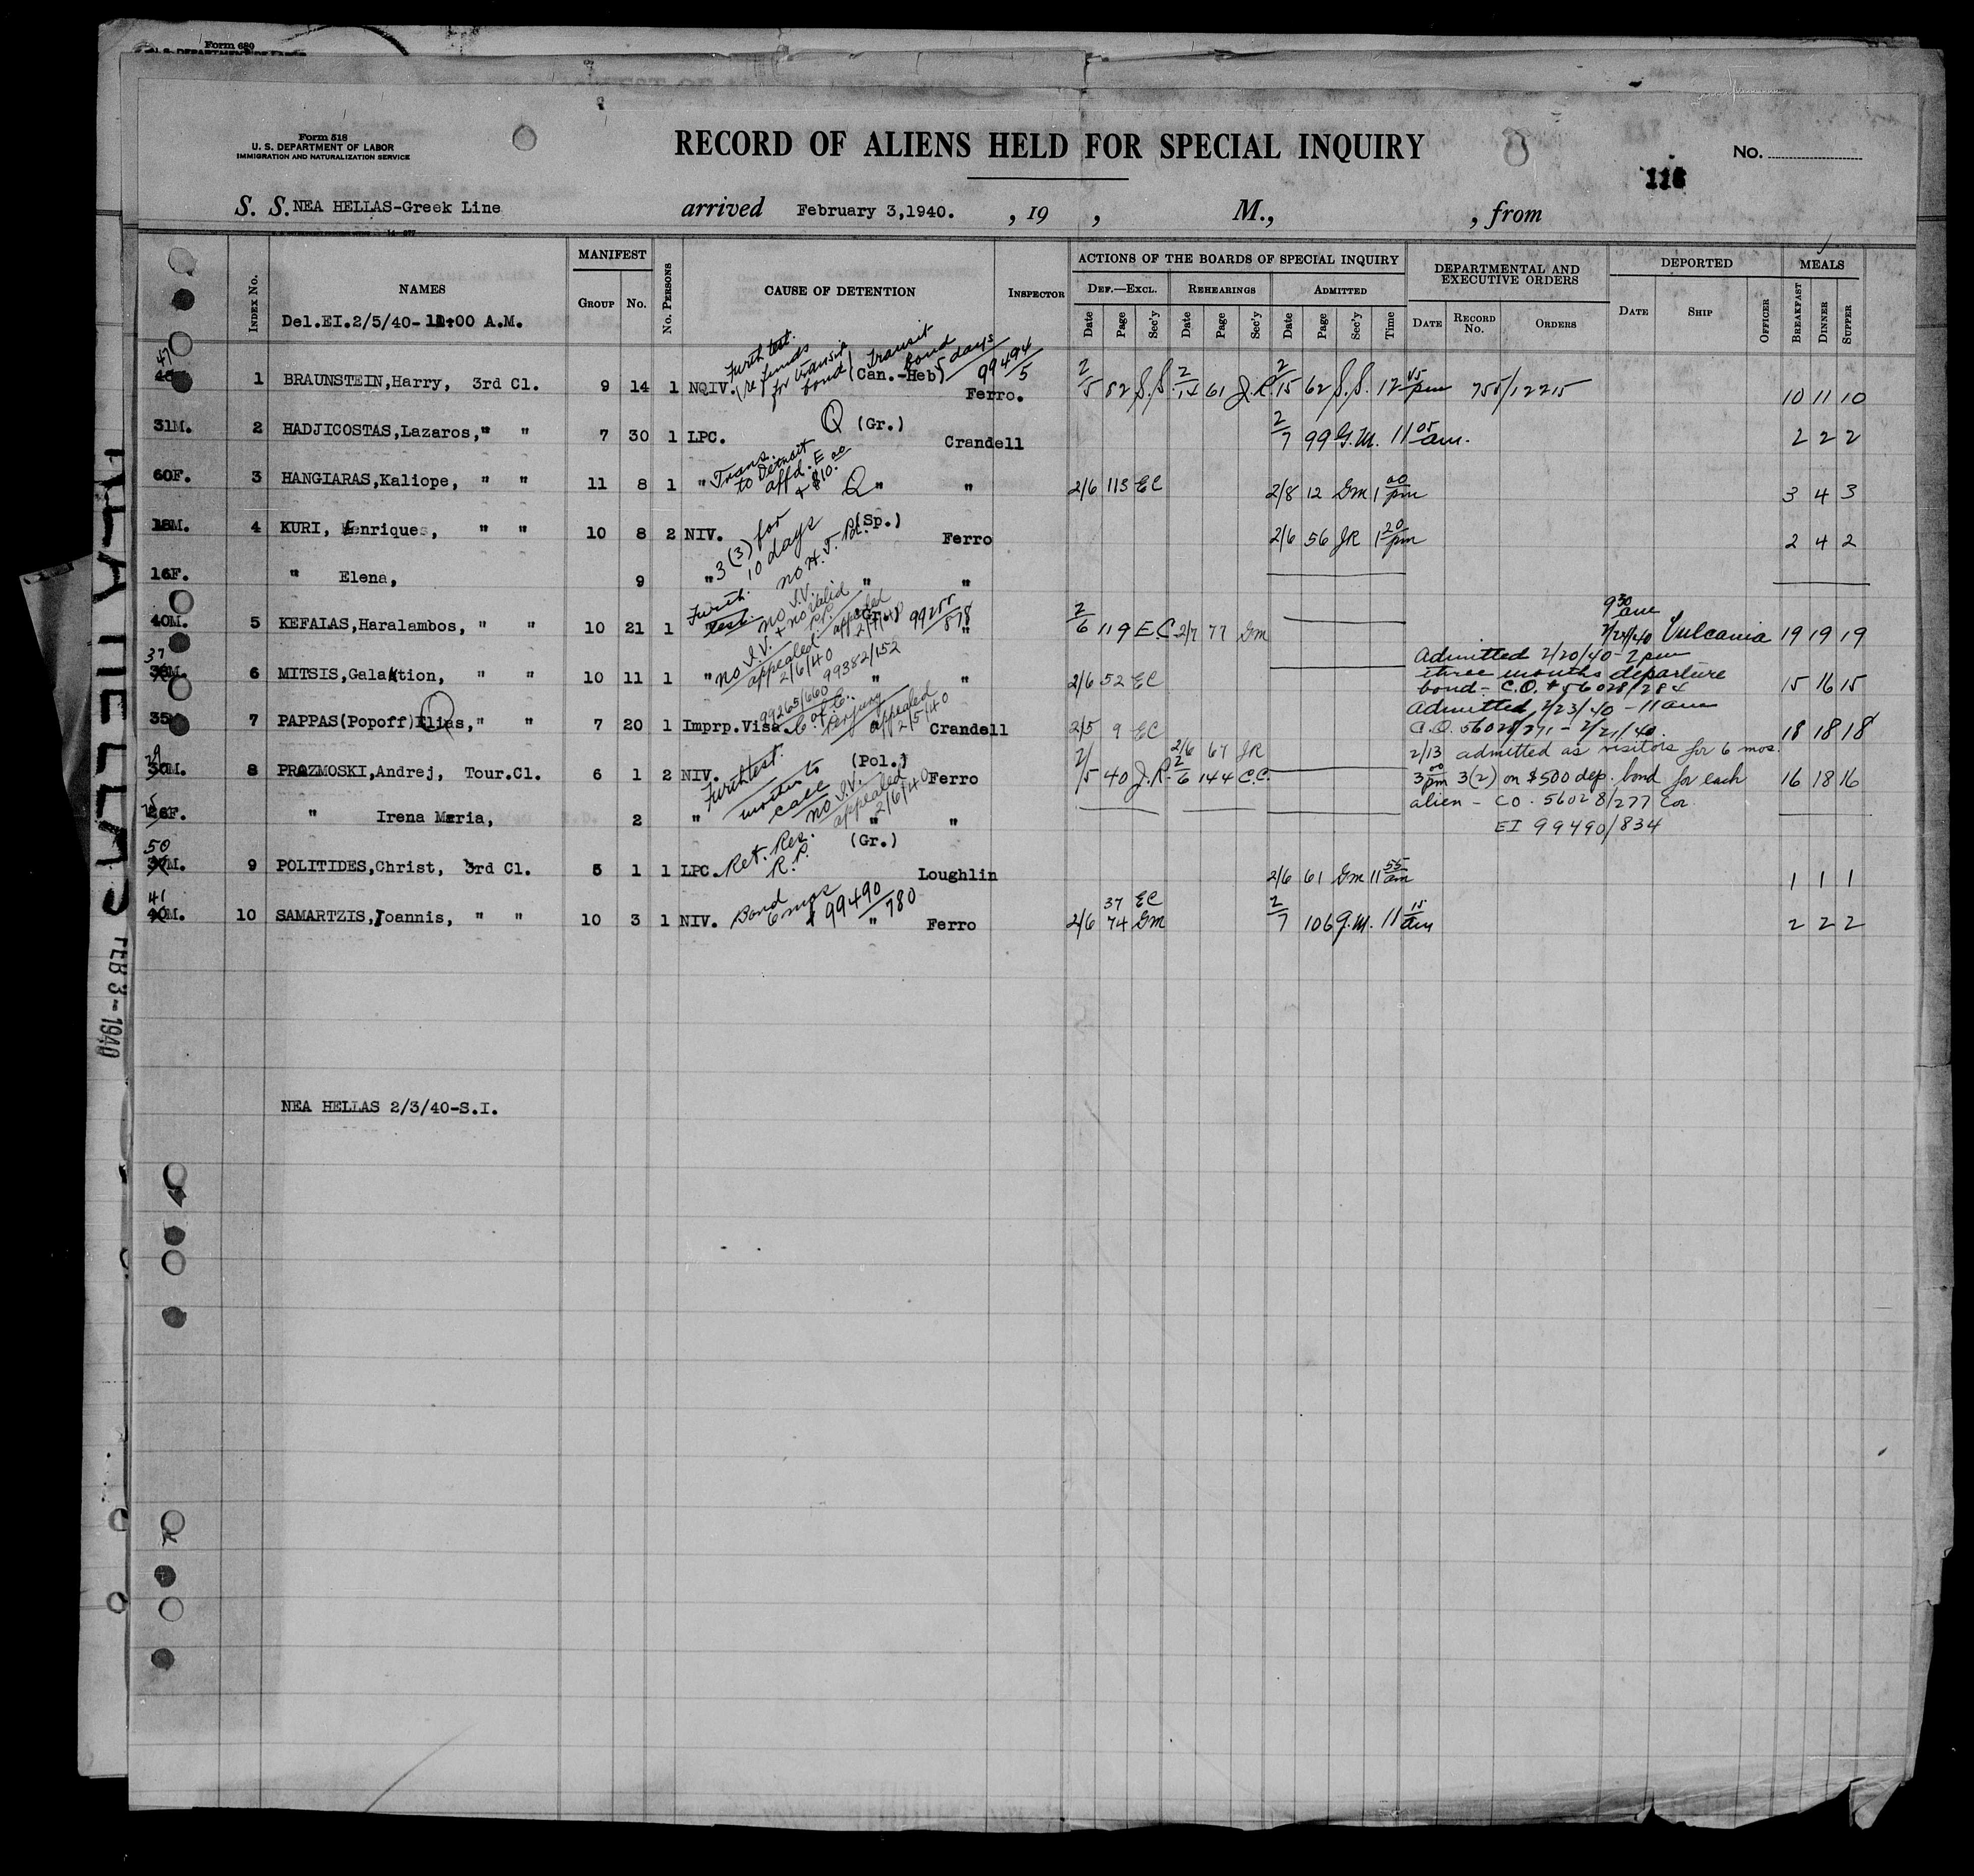 Form 680
Form 518
U. S. DEPARTMENT OF LABOR
IMMIGRATION AND NATURALIZATION SERVICE
RECORD OF ALIENS HELD FOR SPECIAL INQUIRY
No.
116
S. S. NEA HELLAS-Greek Line arrived February 3,1940. , 19 , M., , from
INDEX No. NAMES MANIFEST GROUP No. No. PERSONS CAUSE OF DETENTION INSPECTOR
ACTIONS OF THE BOARDS OF SPECIAL INQUIRY
DEF.—EXCL. REHEARINGS ADMITTED
Date Page Sec'y Date Page Sec'y Date Page Sec'y Time
DEPARTMENTAL AND EXECUTIVE ORDERS
DATE RECORD No. ORDERS
DEPORTED
DATE SHIP OFFICER
MEALS
BREAKFAST DINNER SUPPER
Del.EI.2/5/40-11:00 A.M.
47 1 BRAUNSTEIN,Harry, 3rd Cl. 9 14 1 NQIV. Furth test. (re funds for transit bond) Transit Bond 5 days (Can.-Heb) 99494/5 Ferro. 2/5 52 S.S. 2/15 61 J.R. 2/15 62 S.S. 12 45 pm 755/12215 10 11 10
31M. 2 HADJICOSTAS,Lazaros," " 7 30 1 LPC. Q (Gr.) Crandell 2/7 99 G.M. 11 05 am. 2 2 2
60F. 3 HANGIARAS,Kaliope, " " 11 8 1 " Trans. to Detroit affd. E + $10.00 Q " " 2/6 113 EC 2/8 12 Gm 1 00 pm 3 4 3
18M. 4 KURI, Enriques, " " 10 8 2 NIV. 3(3) for 10 days no H.T. Pd. (Sp.) Ferro 2/6 56 JR 1 20 pm 2 4 2
16F. " Elena, 9 " " "
40M. 5 KEFALAS,Haralambos, " " 10 21 1 " Furth. test. no I.V. + no valid P.P. appealed 2/7/40 (Gr.) 99255/878 " 2/6 119 EC 2/7 77 Gm 9 30 am 2/24/40 Vulcania 19 19 19
37 6 MITSIS,Galaktion, " " 10 11 1 " no I.V. appealed 2/6/40 99382/152 " " 2/6 52 EC Admitted 2/20/40 - 2 pm
three months departure
bond - C.O. # 56028/284 15 16 15
35 7 PAPPAS(Popoff)Elias," " 7 20 1 Imprp.Visa. 99265/660 C. of C. Perjury appealed 2/5/40 " Crandell 2/5 9 EC Admitted 2/23/40 - 11 am
C.O. 56028/271 - 2/21/40. 18 18 18
29 8 PRAZMOSKI,Andrej, Tour.Cl. 6 1 2 NIV. Furth test. minister to call no I.V. appealed 2/6/40 (Pol.) Ferro 2/5 40 J.R. 2/6 67 JR 2/6 144 C.C. 2/13 admitted as visitors for 6 mos.
3 00 pm 3(2) on $500 dep. bond for each
alien - CO. 56028/277 Cor. 16 18 16
EI 99490/834
26F. " Irena Maria, 2 " " "
50 9 POLITIDES,Christ, 3rd Cl. 5 1 1 LPC. Ret. Res. R.P. (Gr.) Loughlin 2/6 61 Gm 11 55 am 1 1 1
41 10 SAMARTZIS,Ioannis, " " 10 3 1 NIV. Bond 6 mos 99490/780 " Ferro 2/6 37 EC 74 Gm 2/7 106 J.M. 11 15 am 2 2 2
NEA HELLAS 2/3/40-S.I.
FEB 3-1940